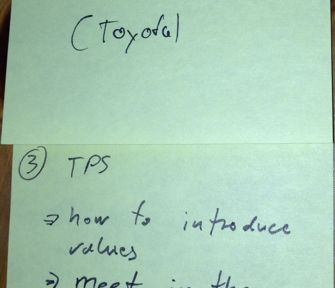 (Toyota)
③ TPS
⇒ how to introduce
values
⇒ meet in the